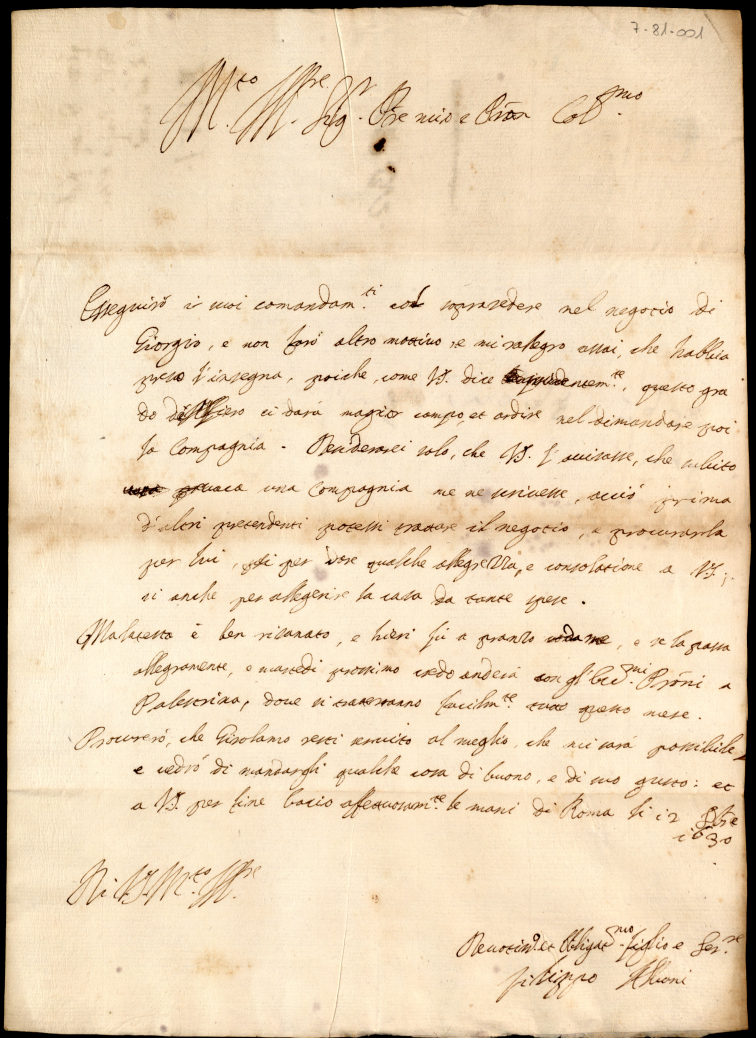 7-81-001
M.to Ill.re Sig.r Pre mio e Pron Col.mo
Esseguirò i suoi comandam.ti col soprasedere nel negotio di
Giorgio, e non farò altro mottivo se mi ralegro assai, che habbia
preso l'insegna, poiche, come V.S. dice questo gra
do d'Alfiero ci darà magior campo, et ardire nel dimandare poi
la Compagnia. Residerarei solo, che V.S. l'avisasse, che subito
una Compagnia me ne scrivesse, acciò prima
d'altri pretendenti potessi trattare il negotio, e procurarla
per lui, per dare qualche allegrezza, e consolatione a V.S.;
si anche per allegerire la casa da tante spese.
Malatesta è ben risanato, e hieri fù a pranzo , e se la passa
allegramente, e martedi prossimo credo anderà con gli Ecc.mi Prõni a
Palestrina, dove si tratteranno facilm.te tutto questo mese.
Procurerò, che Girolamo resti servito al meglio, che mi sarà possibile
e vedrò di mandargli qualche cosa di buono, e di suo gusto: et
a V.S. per fine bacio affettuosam.te le mani di Roma li 12 8bre
1630
Di V.S. M.to Ill.re
Devotiss.o et Obligat.mo figlio e Ser.re
Filippo Albani